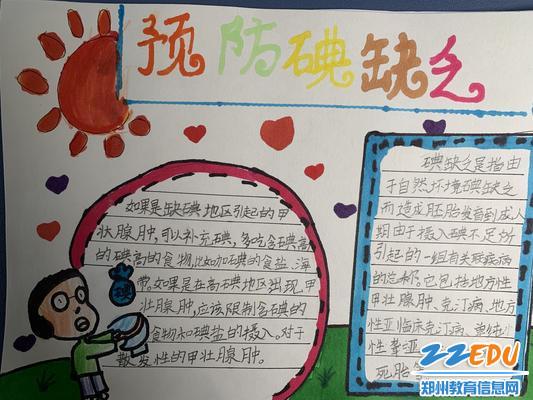 预防碘缺乏
如果是缺碘地区引起的甲
状腺肿,可以补充碘,多吃含碘高
的碘高的食物,比如加碘的食盐、海
带。如果是在高碘地区出现甲
状腺肿,应该限制含碘的
食物和碘盐的摄入。对于
散发性的甲状腺肿。
碘
碘缺乏是指由
于自然环境碘缺乏
而造成胚胎发育到成人
期由于摄入碘不足所
引起的一组有关疾病
的总称。它包括地方性
甲状腺肿、克汀病、地方
性亚临床克汀病、单纯
性聋哑
死胎
22EDU
郑州教育信息网